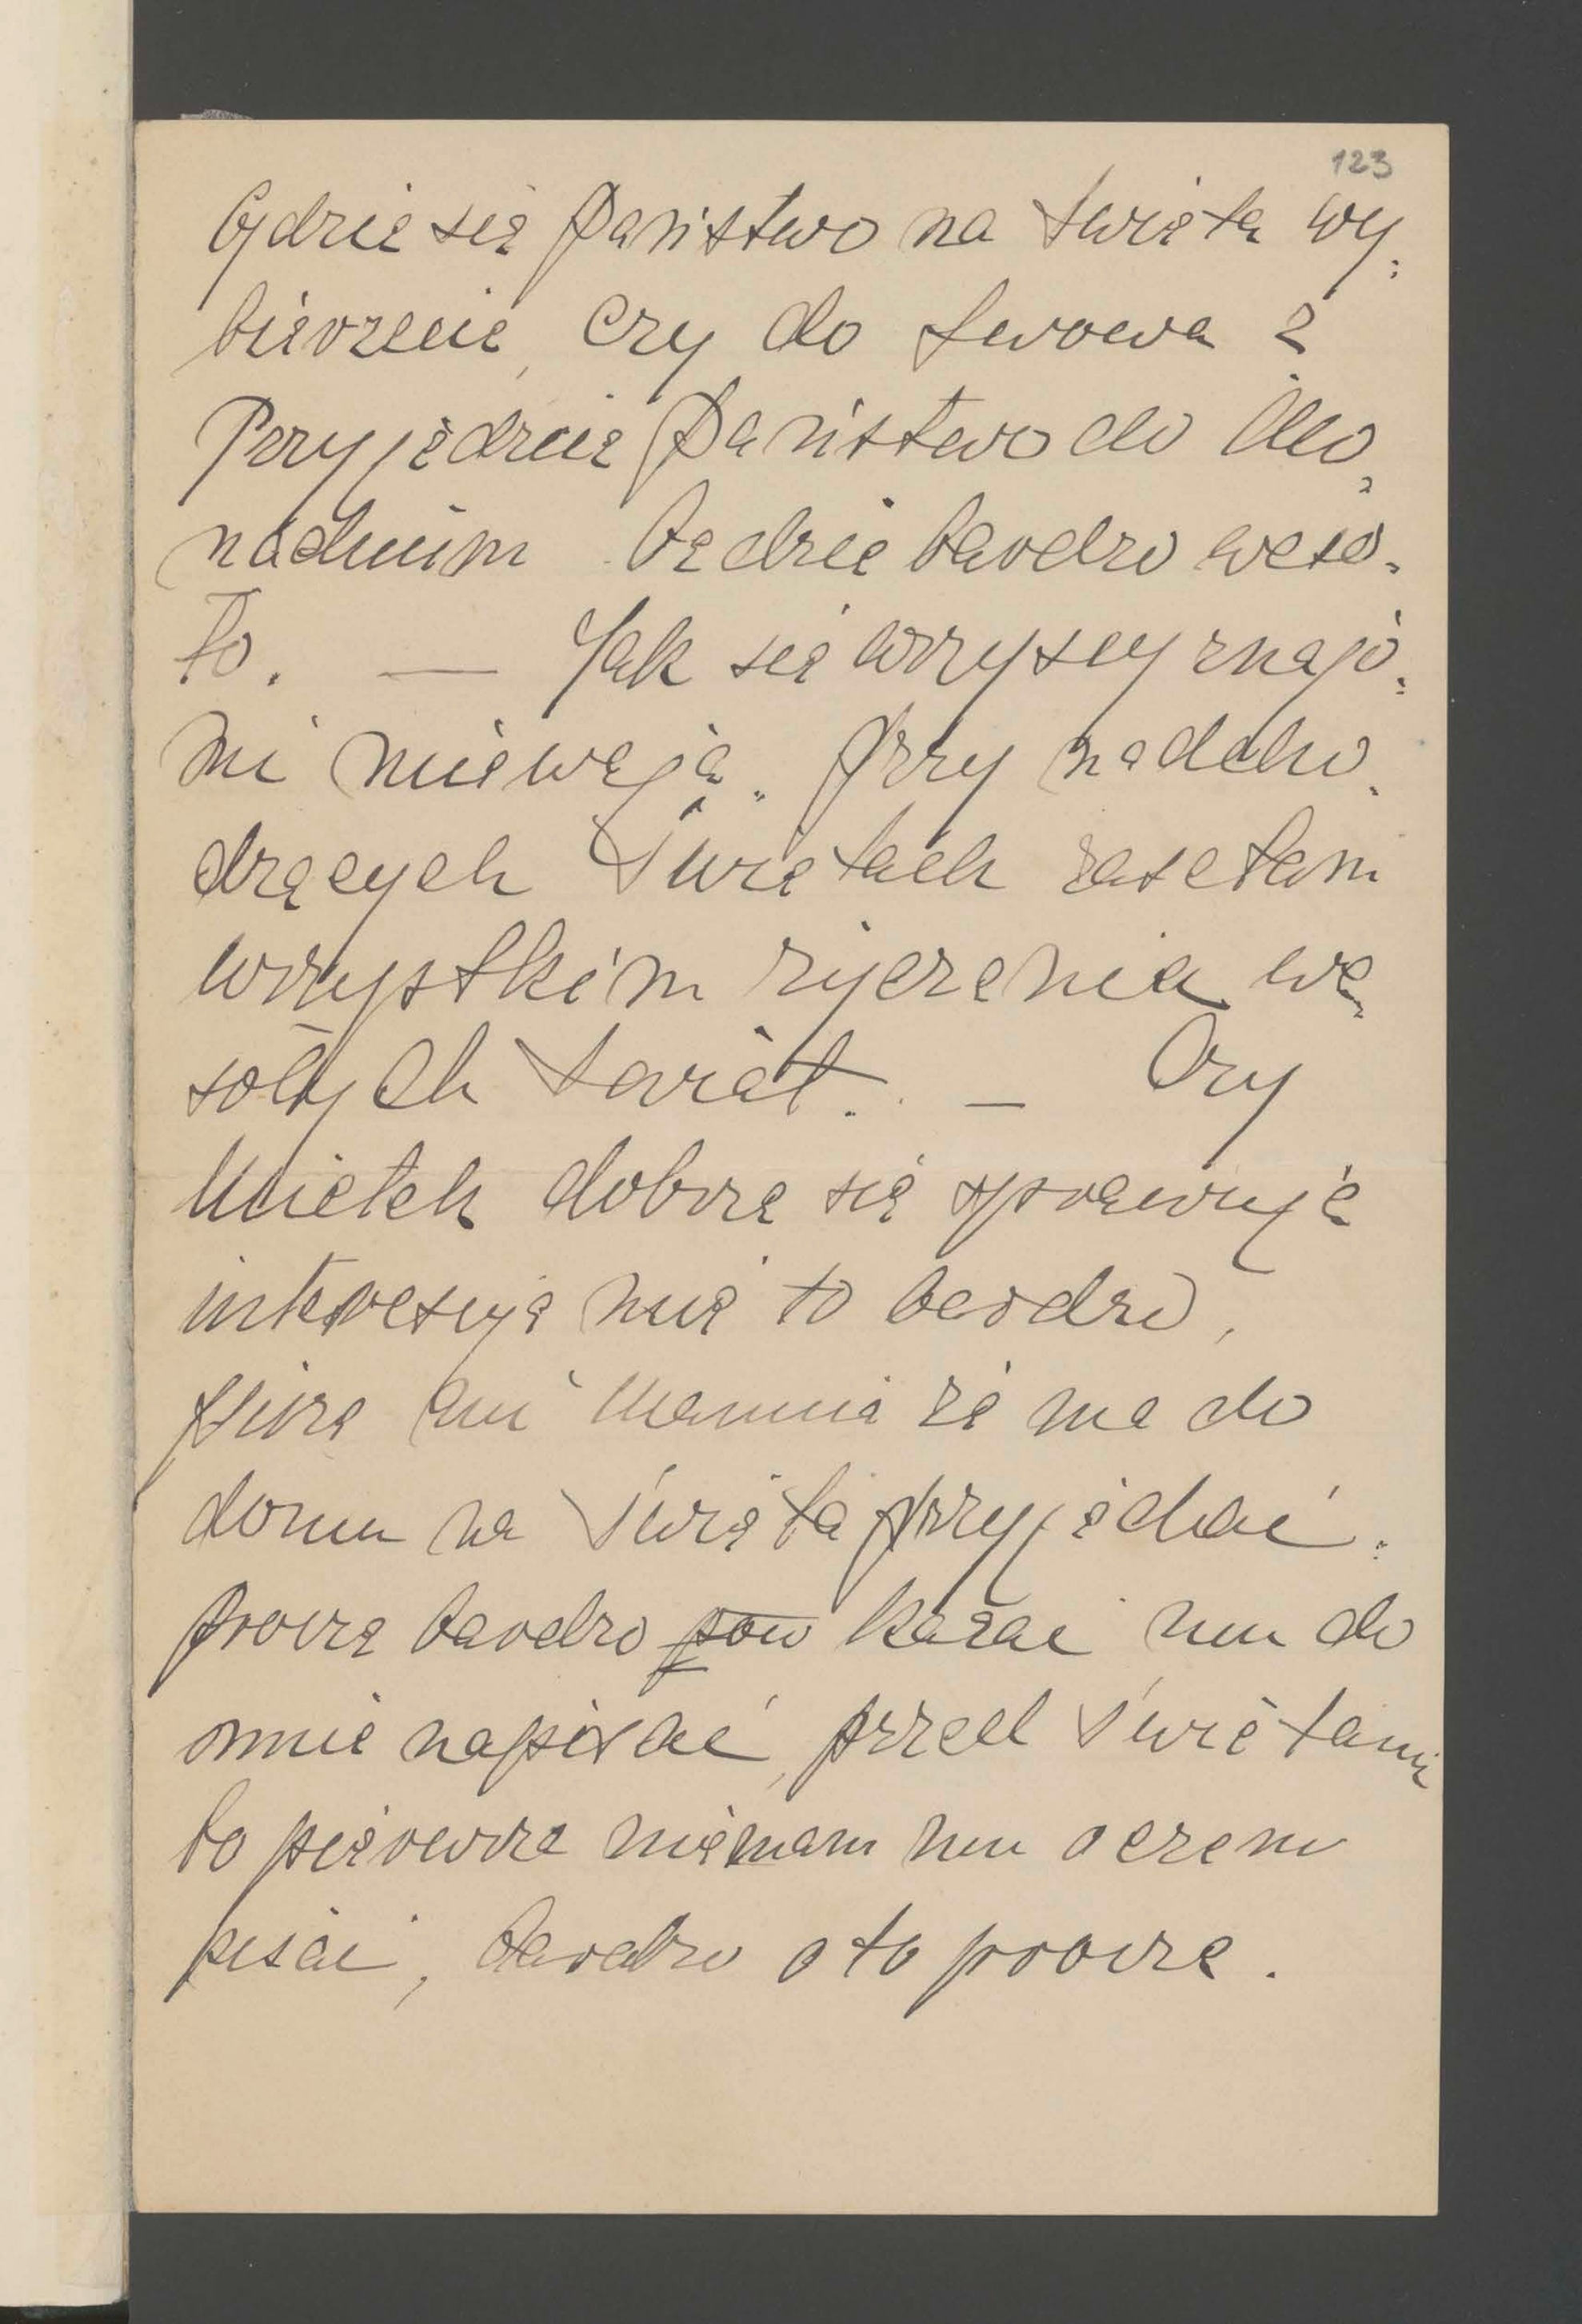 123
Gdzie się Państwo na święta wy-
bierzecie, czy do Lwowa?
Przyjedzcie Państwo do Mo-
nachium będzie bardzo weso-
ło. — Jak się wszyscy znajo-
mi miewają. Przy nadcho-
dzących Świętach zasełam
wszystkim życzenia we-
sołych świąt. — Czy
Mietek dobrze się sprawuje
interesuje mię to bardzo,
pisze mi Mamcia że ma do
domu na Święta przyjechać.
proszę bardzo pow kazać mu do
mnie napisać, przed Świętami
bo pierwsze niemam mu o czem
pisać, bardzo o to proszę.